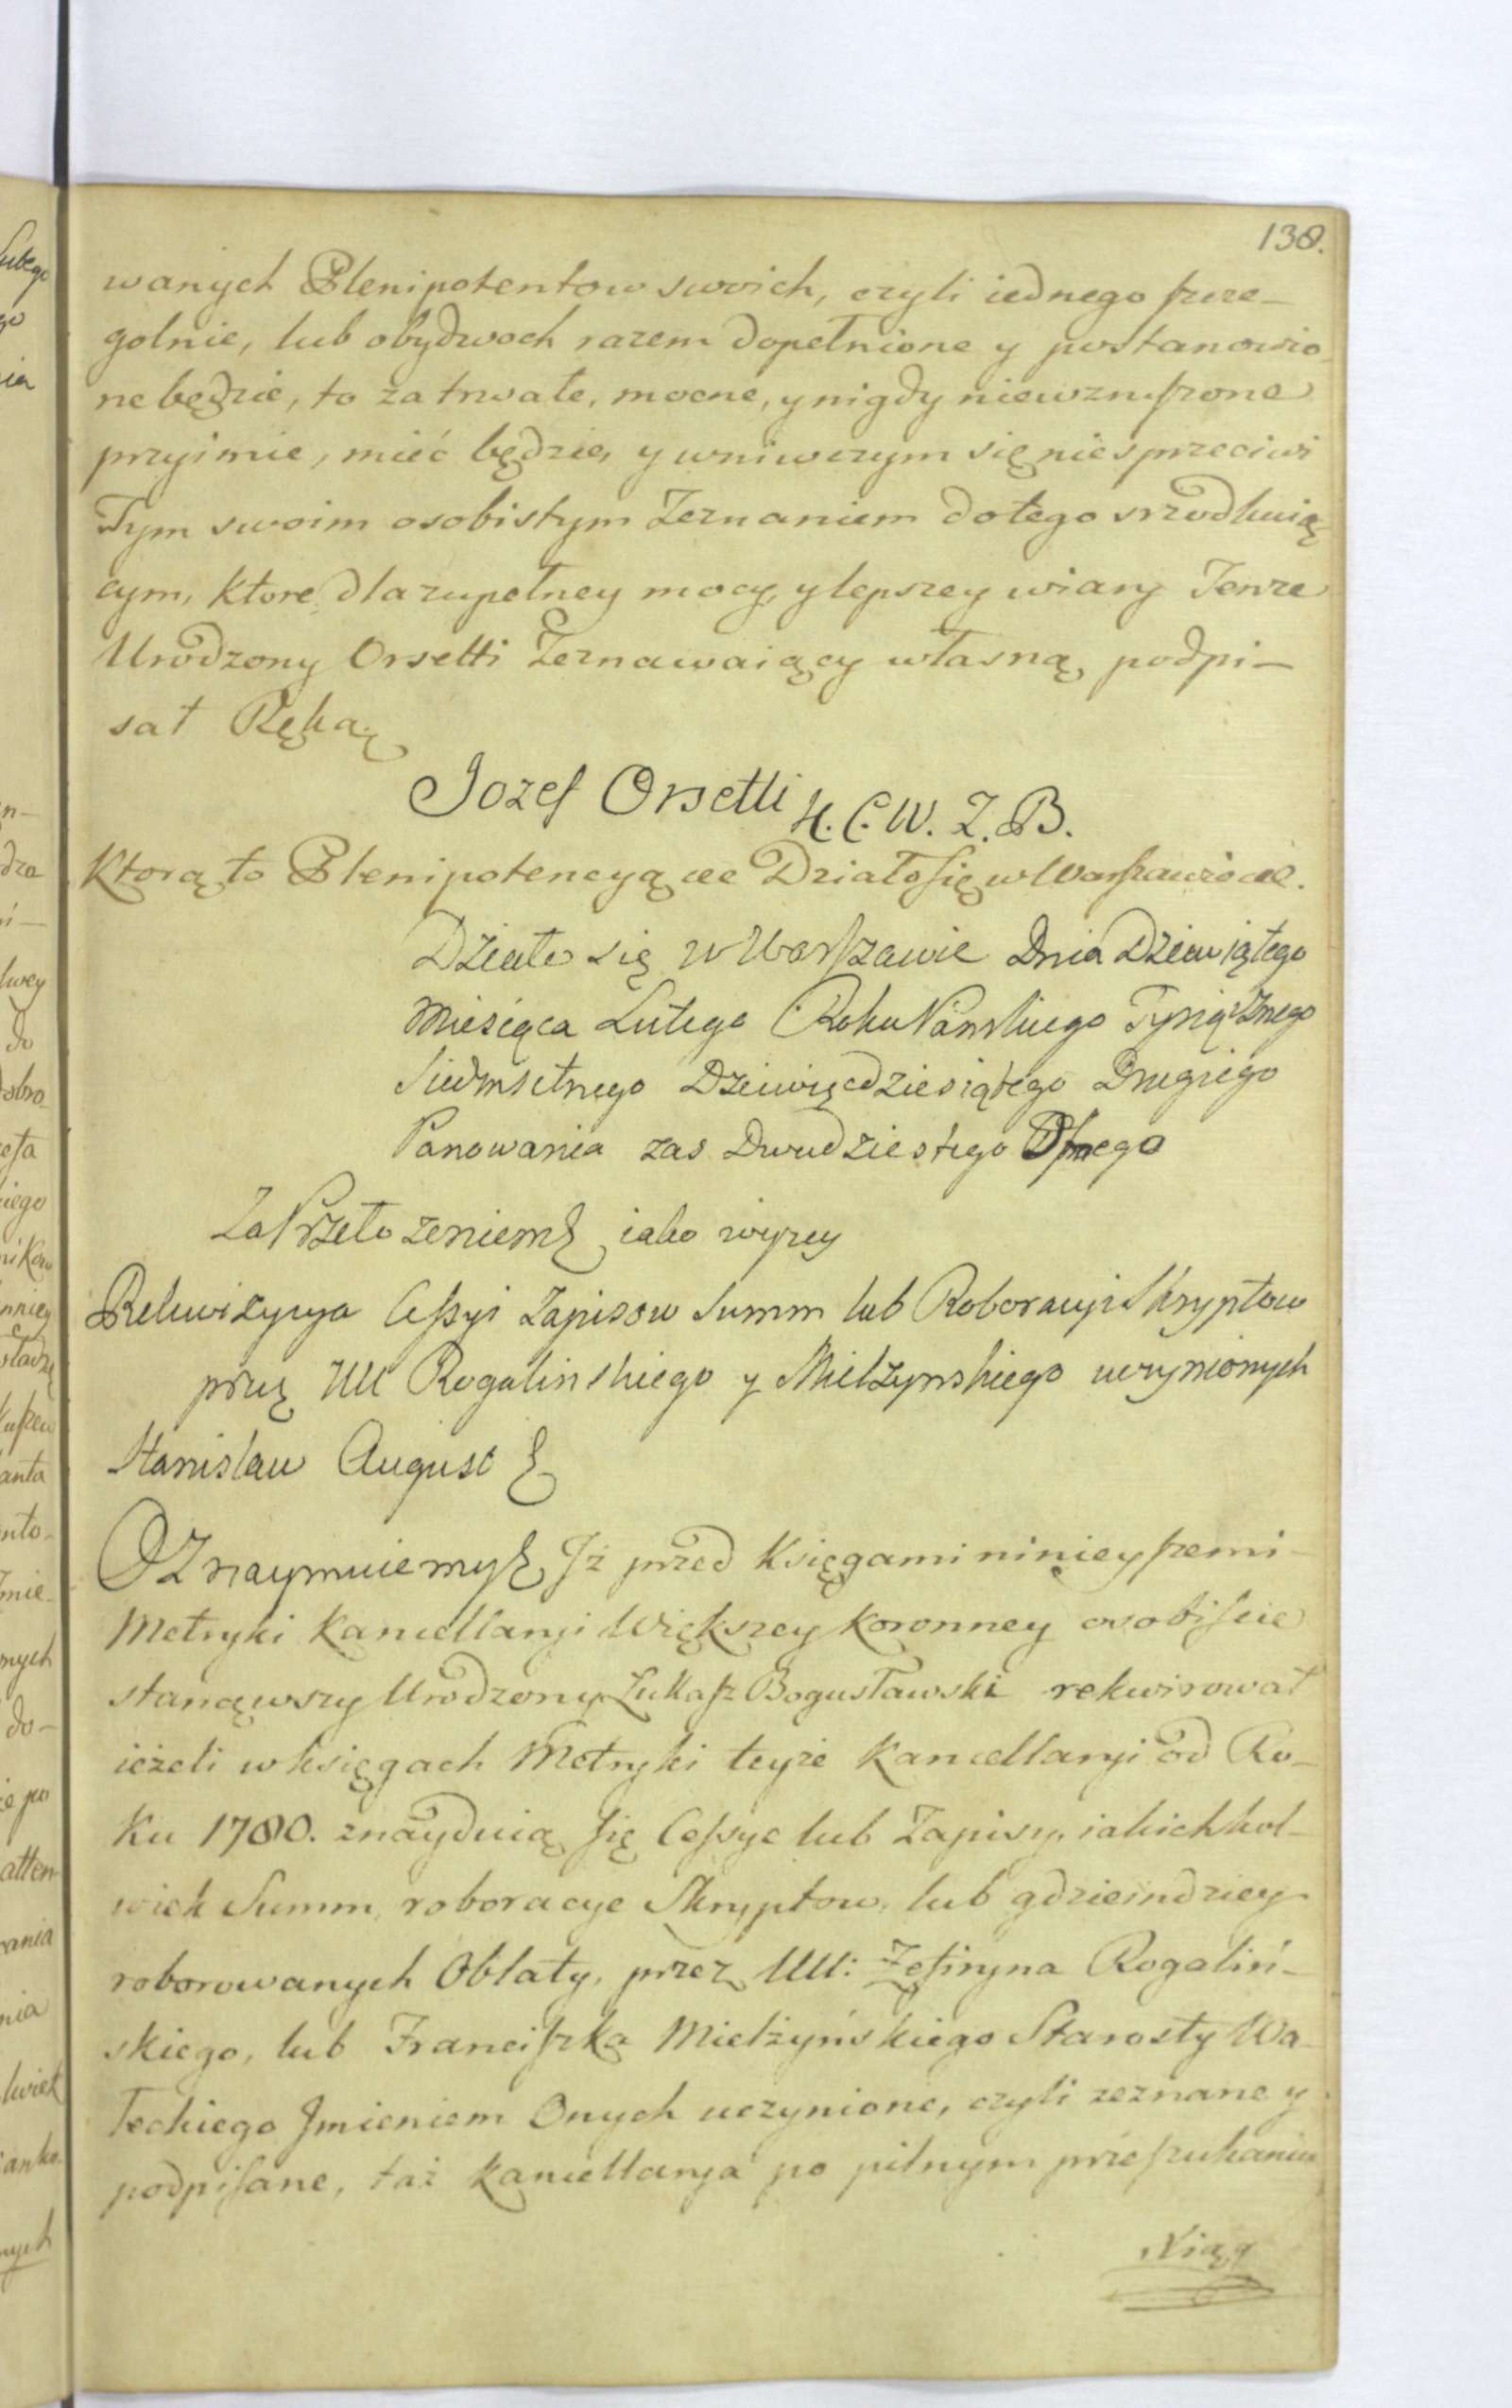 138.
wanych Plenipotentow swoich, czyli iednego szcze-
golnie, lub obydwoch razem dopełnione y postanowio
ne będzie, to za trwałe, mocne, y nigdy niewzruszone
przyimie, mieć będzie, y wniwczym się nie sprzeciwi
Tym swoim osobistym Zeznaniem do tego srzodkuią
cym, ktore dla zupełney mocy, y lepszey wiary Tenze
Urodzony Orsetti Zeznawaiący własną podpi-
sał Ręką
Jozef Orsetti
Ktorą to Plenipotencyą &c Działo się w Warszawie &c.
Działo się w Warszawie Dnia Dziewiątego
Miesiąca Lutego Roku Panskiego Tysiącznego
Siedmsetnego Dziewięcdziesiątego Drugiego
Panowania zas Dwudziestego Osmego
Za Przełozeniem & iako wyzey
Rekwizycya Cessyi Zapisow Summ lub Roboracyi Skryptow
przez UU Rogalinskiego y Mielzynskiego uczynionych
Stanisław August &
Oznaymuiemy & Jż przed Księgami ninieyszemi
Metryki Kancellaryi Większey Koronney osobiscie
stanąwszy Urodzony Łukasz Bogusławski rekwirował
ieżeli w księgach Metryki teyże Kancellaryi od Ro-
ku 1780. znayduią się Cessye lub Zapisy, iakichkol-
wiek Summ, roboracye Skryptow, lub gdzieindziey
roborowanych Oblaty, przez UU: Zefiryna Rogaliń-
skiego, lub Franciszka Mielżyńskiego Starosty Wa
łeckiego Jmieniem Onych uczynione, czyli zeznane y
podpisane, taż Kancellarya po pilnym przeszukaniu